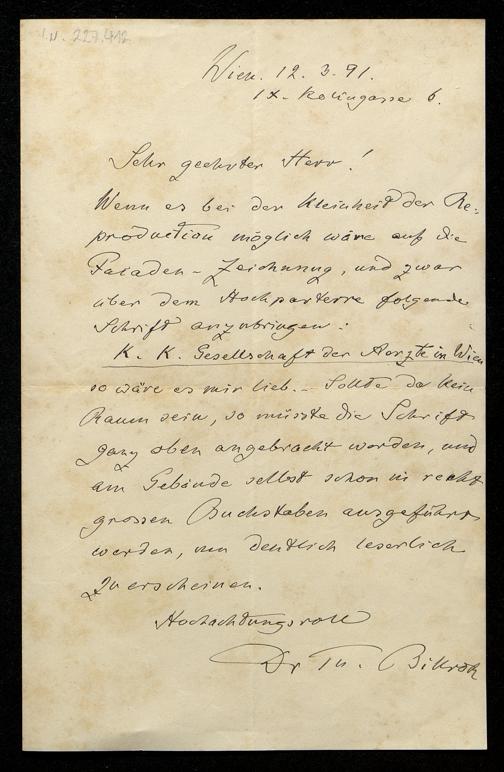 I.N. 227.412
Wien. 12.3.91.
IX. Kolingasse 6.
Sehr geehrter Herr!
Wenn es bei der Kleinheit der Re-
production möglich wäre auf die
Facaden-Zeichnung, und zwar
über dem Hochparterre folgende
Schrift anzubringen:
K. K. Gesellschaft der Aerzte in Wien
so wäre es mir lieb. – Sollte da kein
Raum sein, so müsste die Schrift
ganz oben angebracht werden, und
am Gebäude selbst schon in recht
grossen Buchstaben ausgeführt
werden, um deutlich leserlich
zu erscheinen.
Hochachtungsvoll
Dr Th. Billroth